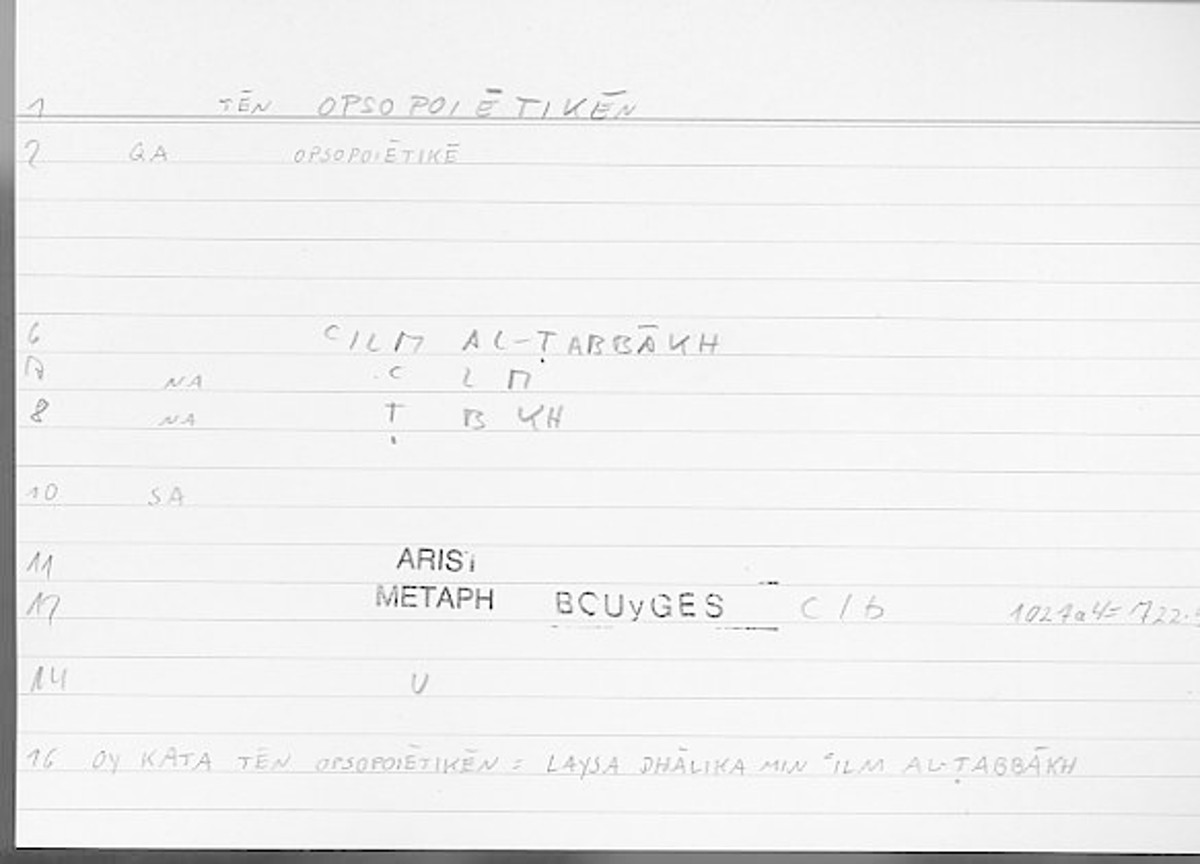 1 TĒN OPSOPOIĒTIKĒN
2 QA OPSOPOIĒTIKĒ
6 ʿILM AL-ṬABBĀKH
7 NA ʿ L M
8 NA Ṭ B KH
10 SA
11 ARIST
12 METAPH BOUyGES C / b 1027a4= 722.
14 U
16 OY KATA TĒN OPSOPOIĒTIKĒN = LAYSA DHĀLIKA MIN ʿILM AL-ṬABBĀKH